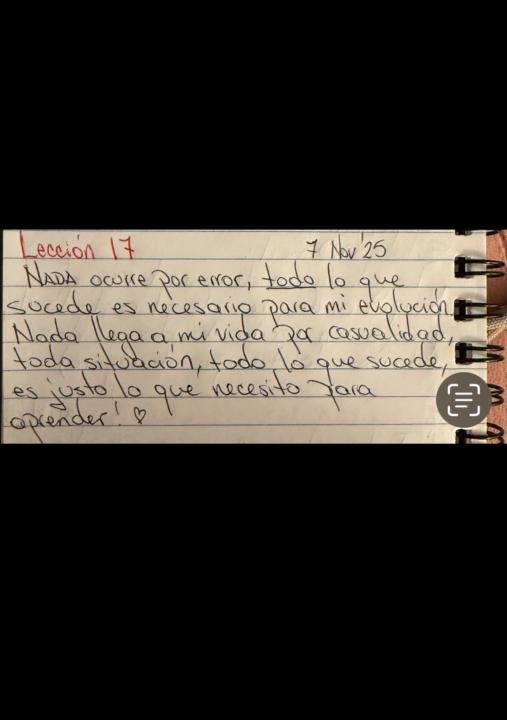 Lección 17
7 Nov '25
NADA ocurre por error, todo lo que
sucede es necesario para mi evolución.
Nada llega a mi vida por casualidad,
toda situación, todo lo que sucede,
es justo lo que necesito para
aprender! ♡